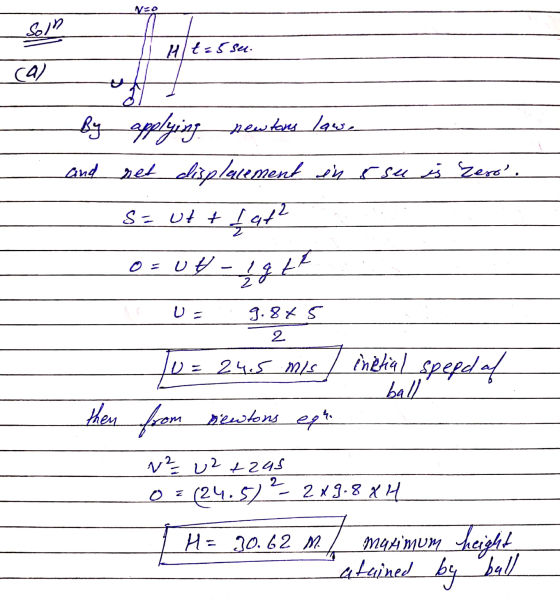 Solⁿ
V=0
H t = 5 sec.
(A)
U
By applying newtons law.
and net displacement in 5 sec is 'zero'.
S = Ut + 1/2 at²
0 = Ut - 1/2 g t²
U = 9.8 × 5 / 2
U = 24.5 m/s initial speed of ball
then from newtons eqⁿ.
V² = U² + 2as
0 = (24.5)² - 2 × 9.8 × H
H = 30.62 m. maximum height
atained by ball